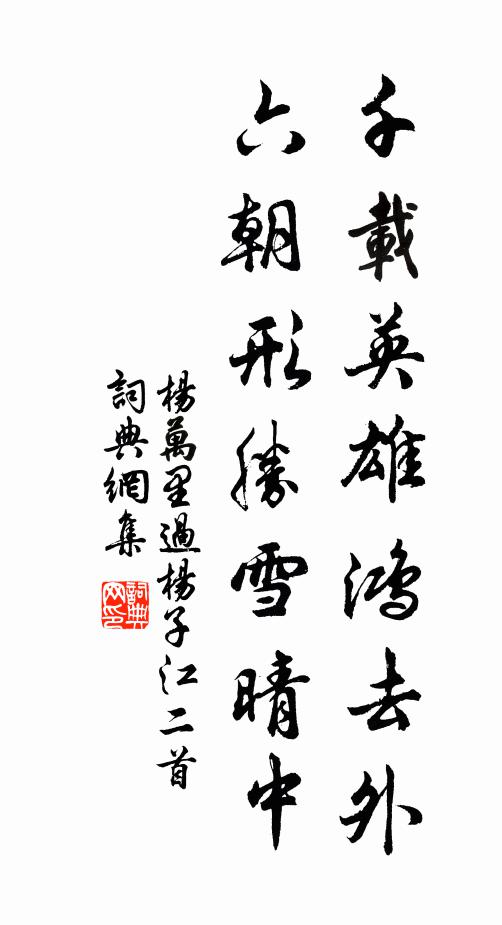 千載英雄鴻去外
六朝形勝雪晴中
楊萬里過楊子江二首
詞典網集
詞典
网印